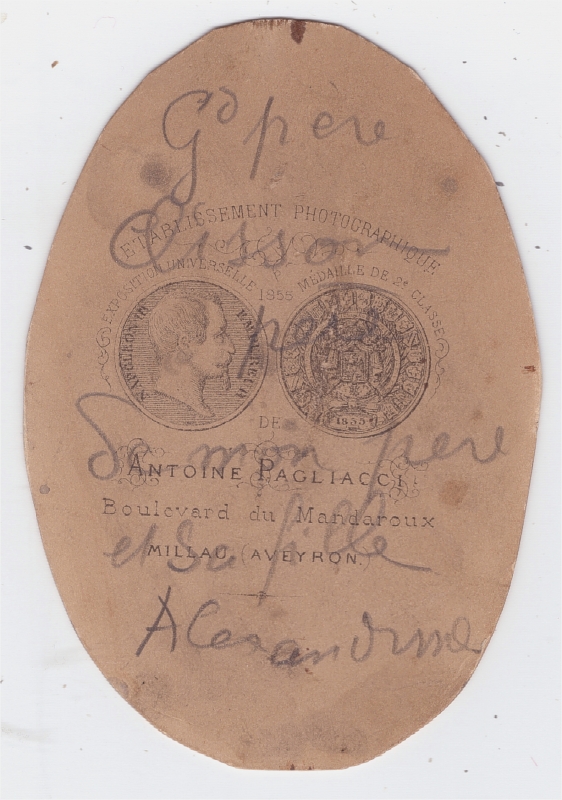 Gd pere
ETABLISSEMENT PHOTOGRAPHIQUE
Cisson
EXPOSITION UNIVERSELLE MÉDAILLE DE 2e CLASSE
1855
NAPOLEON III EMPEREUR
père
1855
DE
De mon pere
ANTOINE PAGLIACCI
Boulevard du Mandaroux
et sa fille
MILLAU (AVEYRON.)
Alexandrine